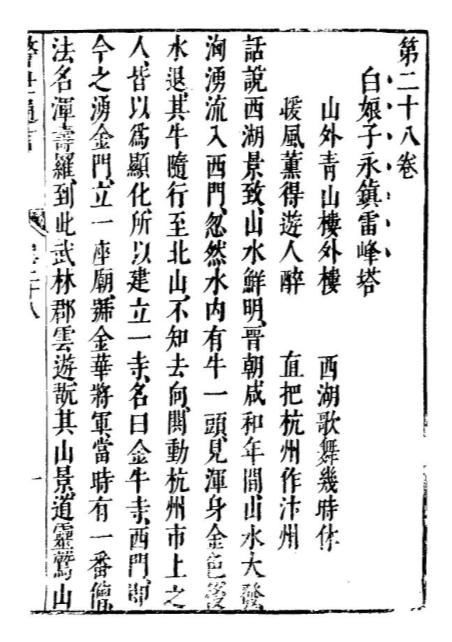 第二十八卷
白娘子永鎮雷峰塔
山外青山樓外樓　西湖歌舞幾時休
暖風薰得遊人醉　直把杭州作汴州
話說西湖景致、山水鮮明、晉朝咸和年間、山水大發
洶湧流入西門、忽然水内有牛一頭、見渾身金色、後
水退、其牛隨行至北山、不知去向、鬨動杭州市上之
人、皆以爲顯化、所以建立一寺、名曰金牛寺、西門、卽
今之湧金門、立一座廟、號金華將軍、當時有一番僧
法名渾壽羅、到此武林郡雲遊、翫其山景、道靈鷲山
警世通言　卷二十八　一